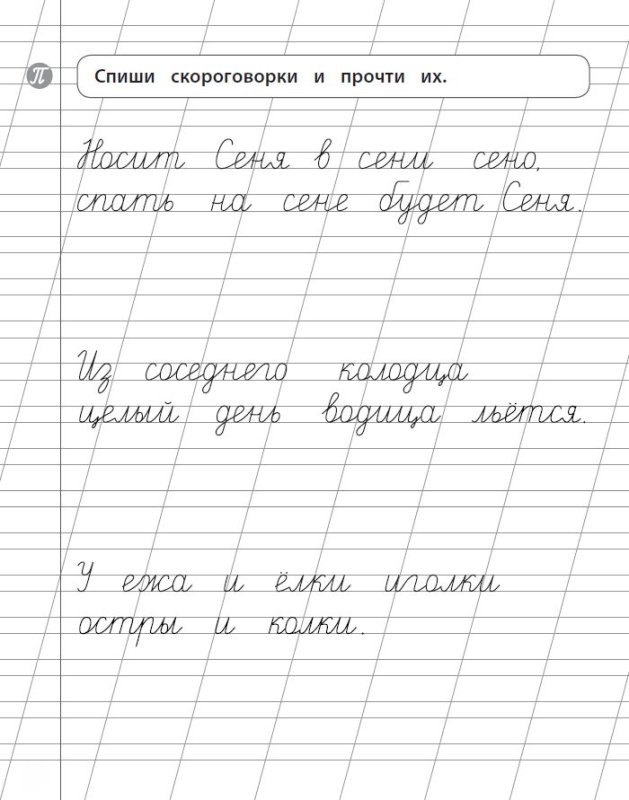 П
Спиши скороговорки и прочти их.
Носит Сеня в сени сено,
спать на сене будет Сеня.
Из соседнего колодца
целый день водица льётся.
У ежа и ёлки иголки
остры и колки.